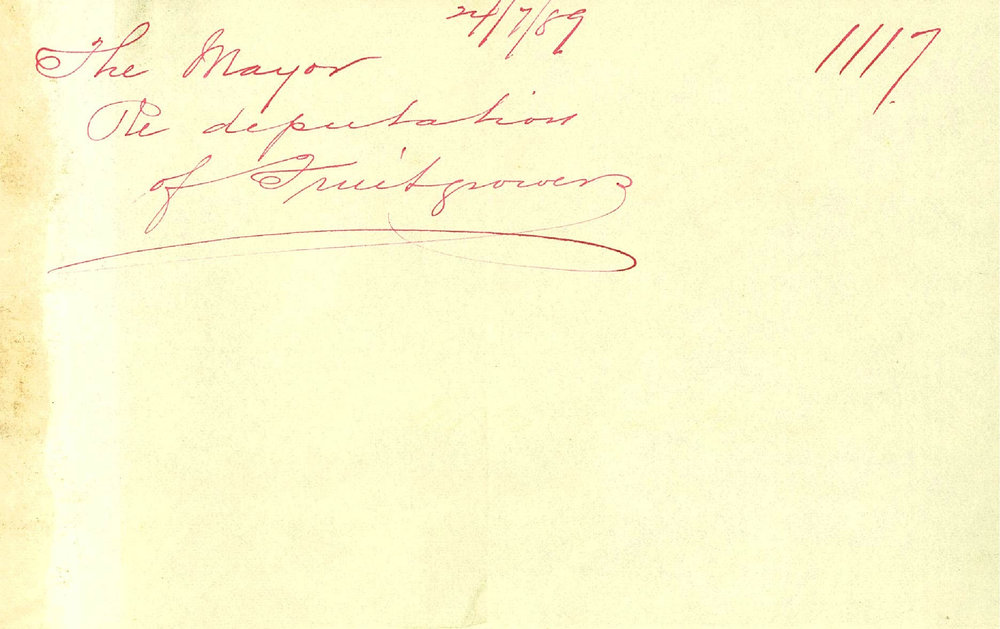 24/7/89
1117
The Mayor
Re deputation
of Fruitgrowers